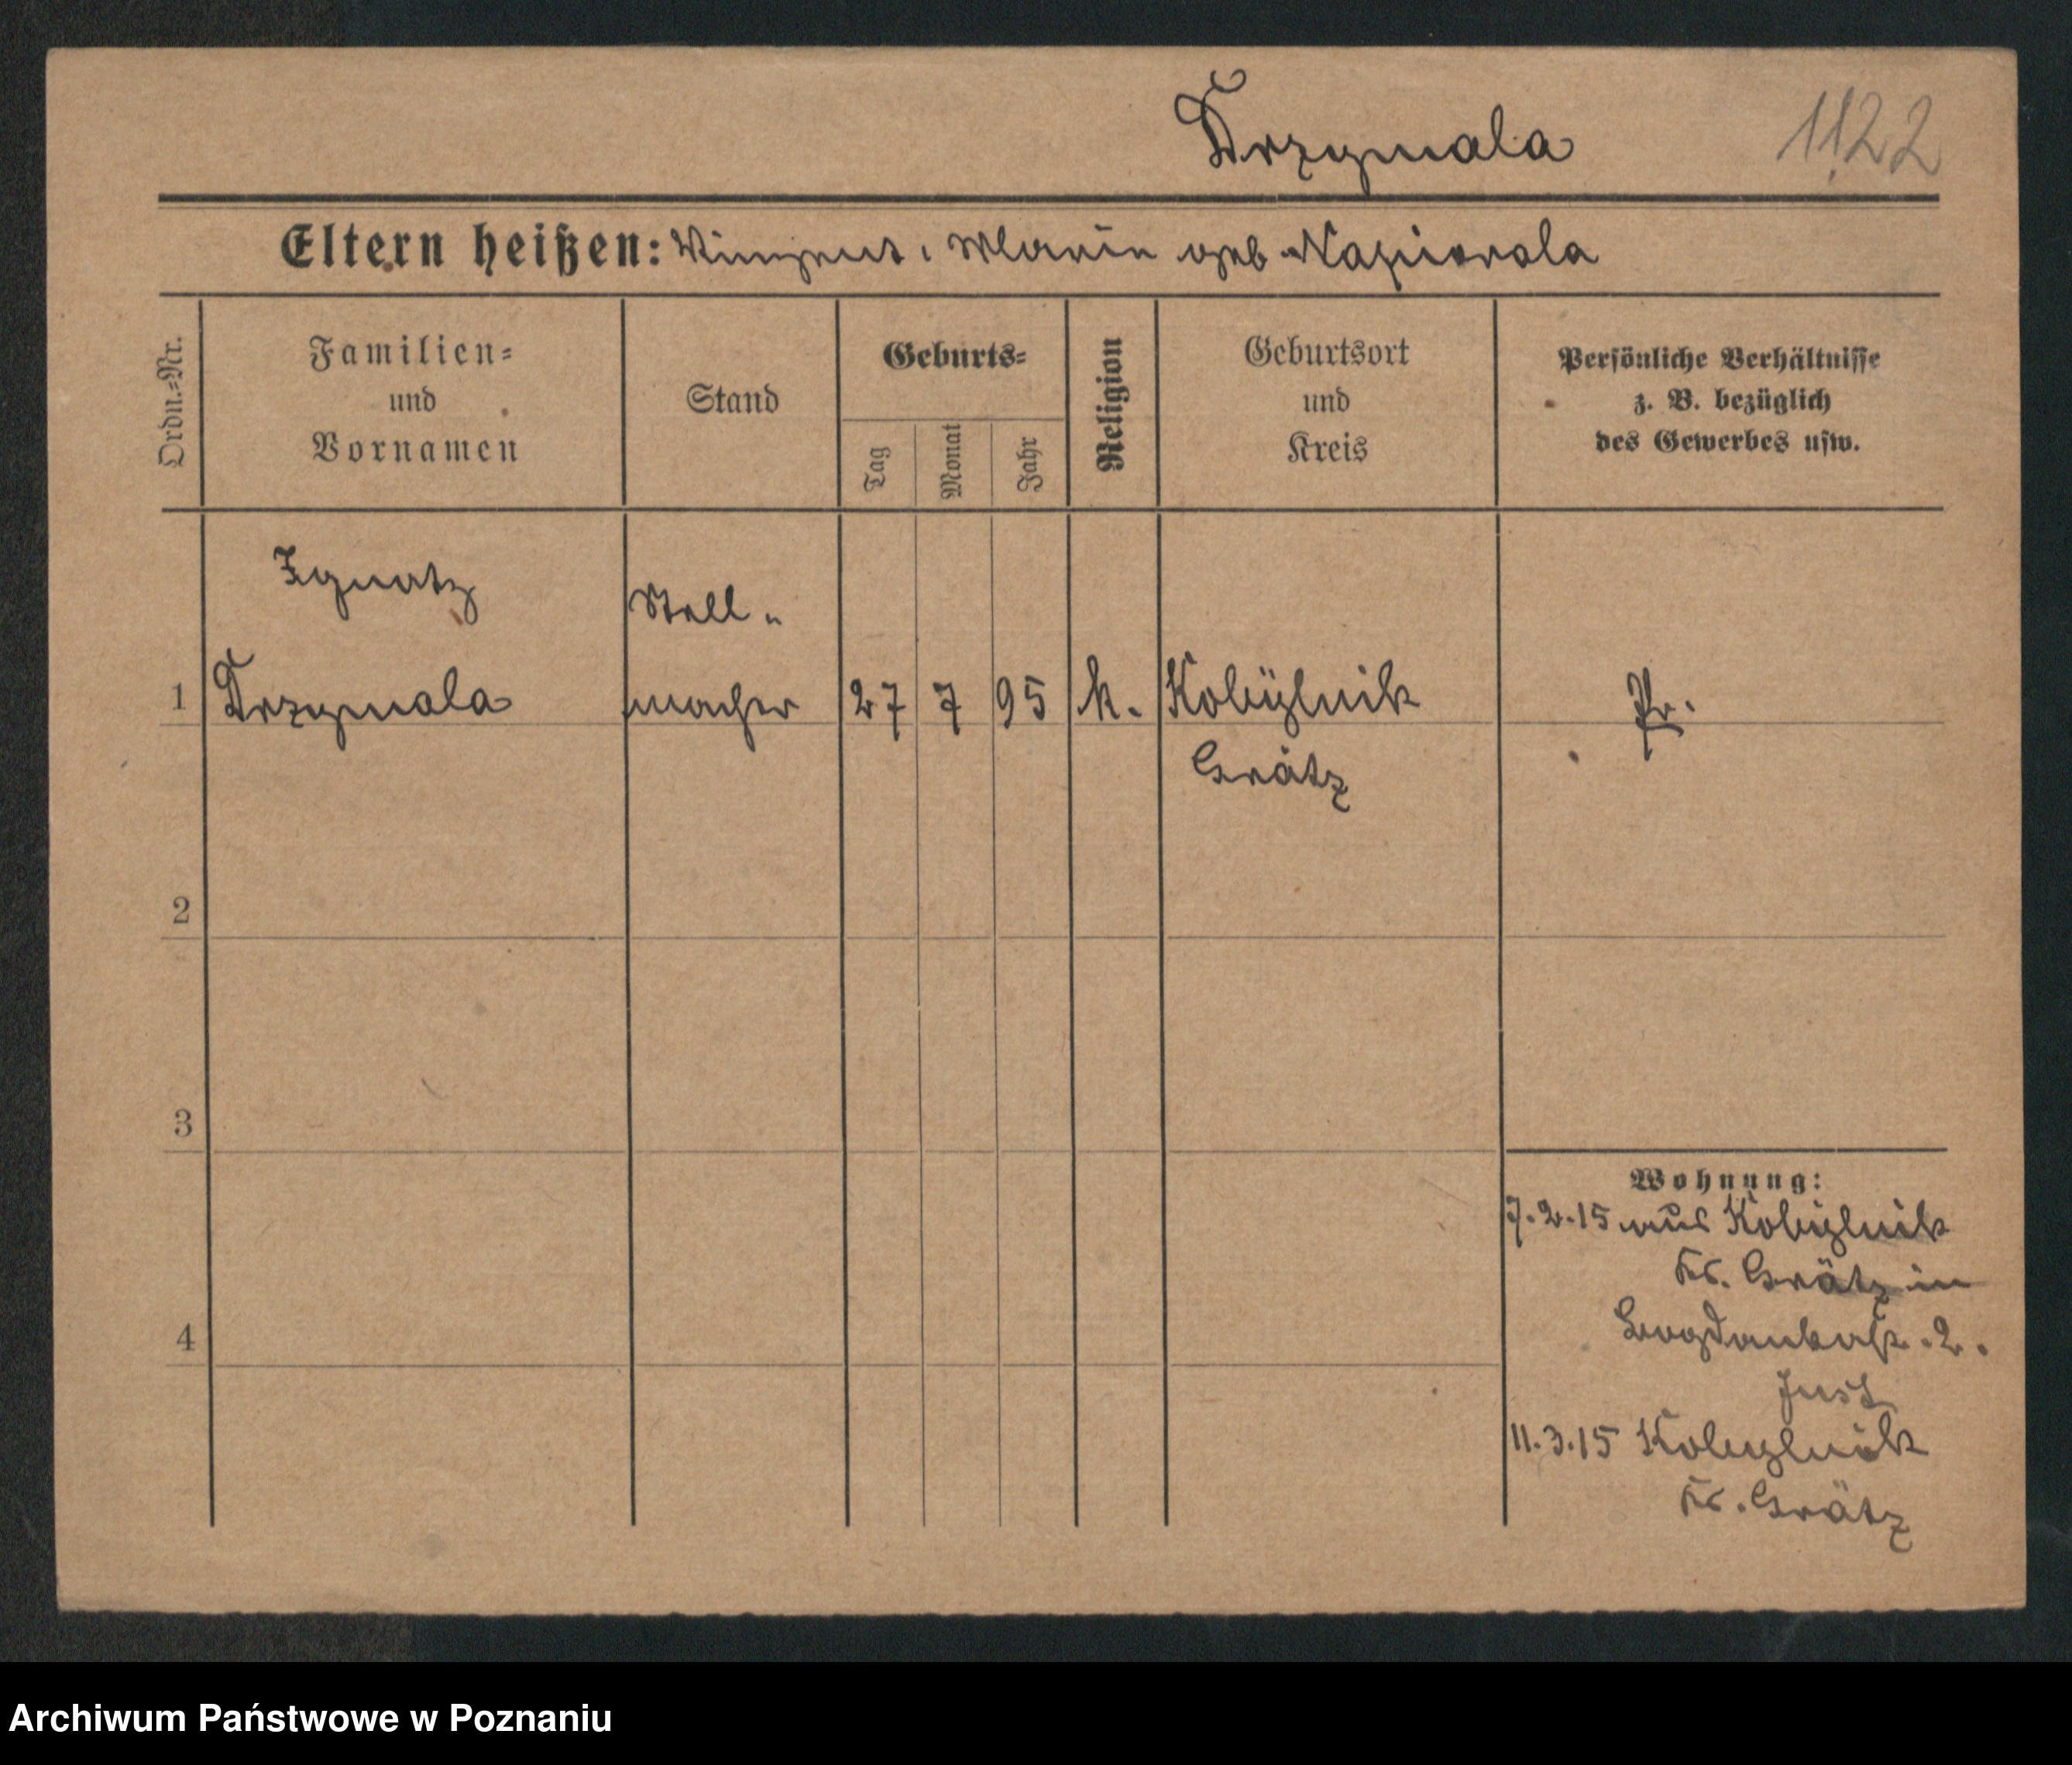 Drzymala
1122
Eltern heißen: Vinzent, Marie geb Napierala
Ordn.=Nr.
Familien=
und
Vornamen
Stand
Geburts=
Tag
Monat
Jahr
Religion
Geburtsort
und
Kreis
Persönliche Verhältnisse
z. B. bezüglich
des Gewerbes usw.
Ignatz
Stell-
1 Drzymala macher 27 7 95 k. Kobylnik Pr.
Grätz
2
3
4
Wohnung:
7.2.15 aus Kobylnik
Kr. Grätz in
Bogdankastr. 2.
11.3.15 Kobylnik
Kr. Grätz
Archiwum Państwowe w Poznaniu